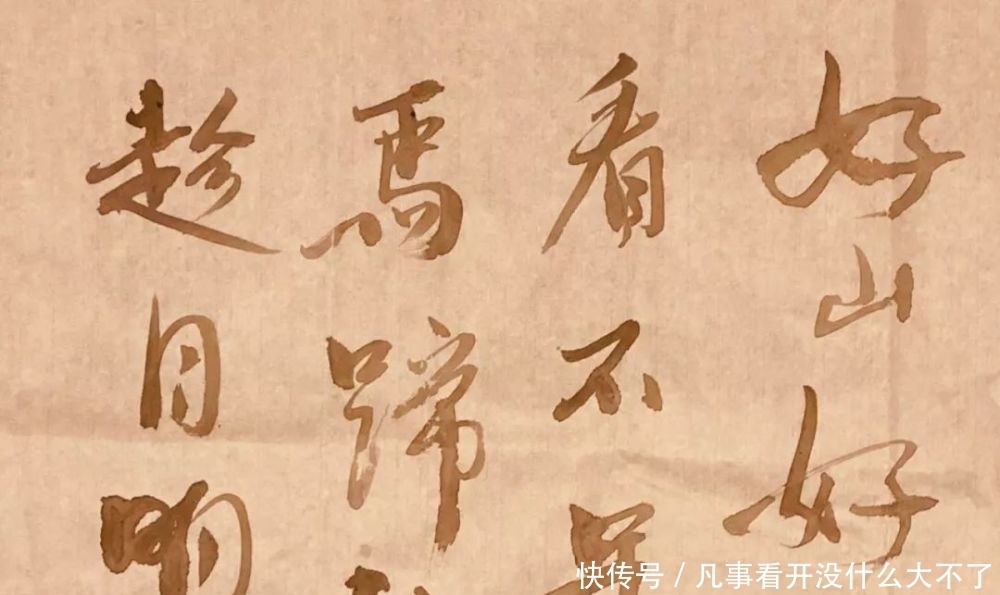 好山好
看不
馬蹄
趁月明
快传号 / 凡事看开没什么大不了